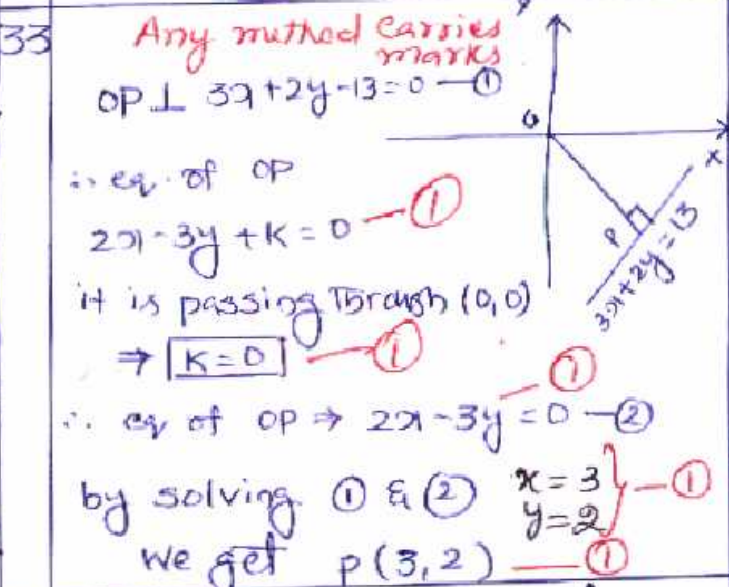 33
Any method carries
marks
OP ⊥ 3x+2y-13=0 — ①
∴ eq. of OP
2x-3y+K=0 — ①
it is passing Through (0,0)
⇒ K=0 — ①
∴ eq of OP ⇒ 2x-3y=0 — ②
①
by solving ① & ② x=3
y=2 } — ①
We get P(3,2) — ①
O
x
P
3x+2y=13